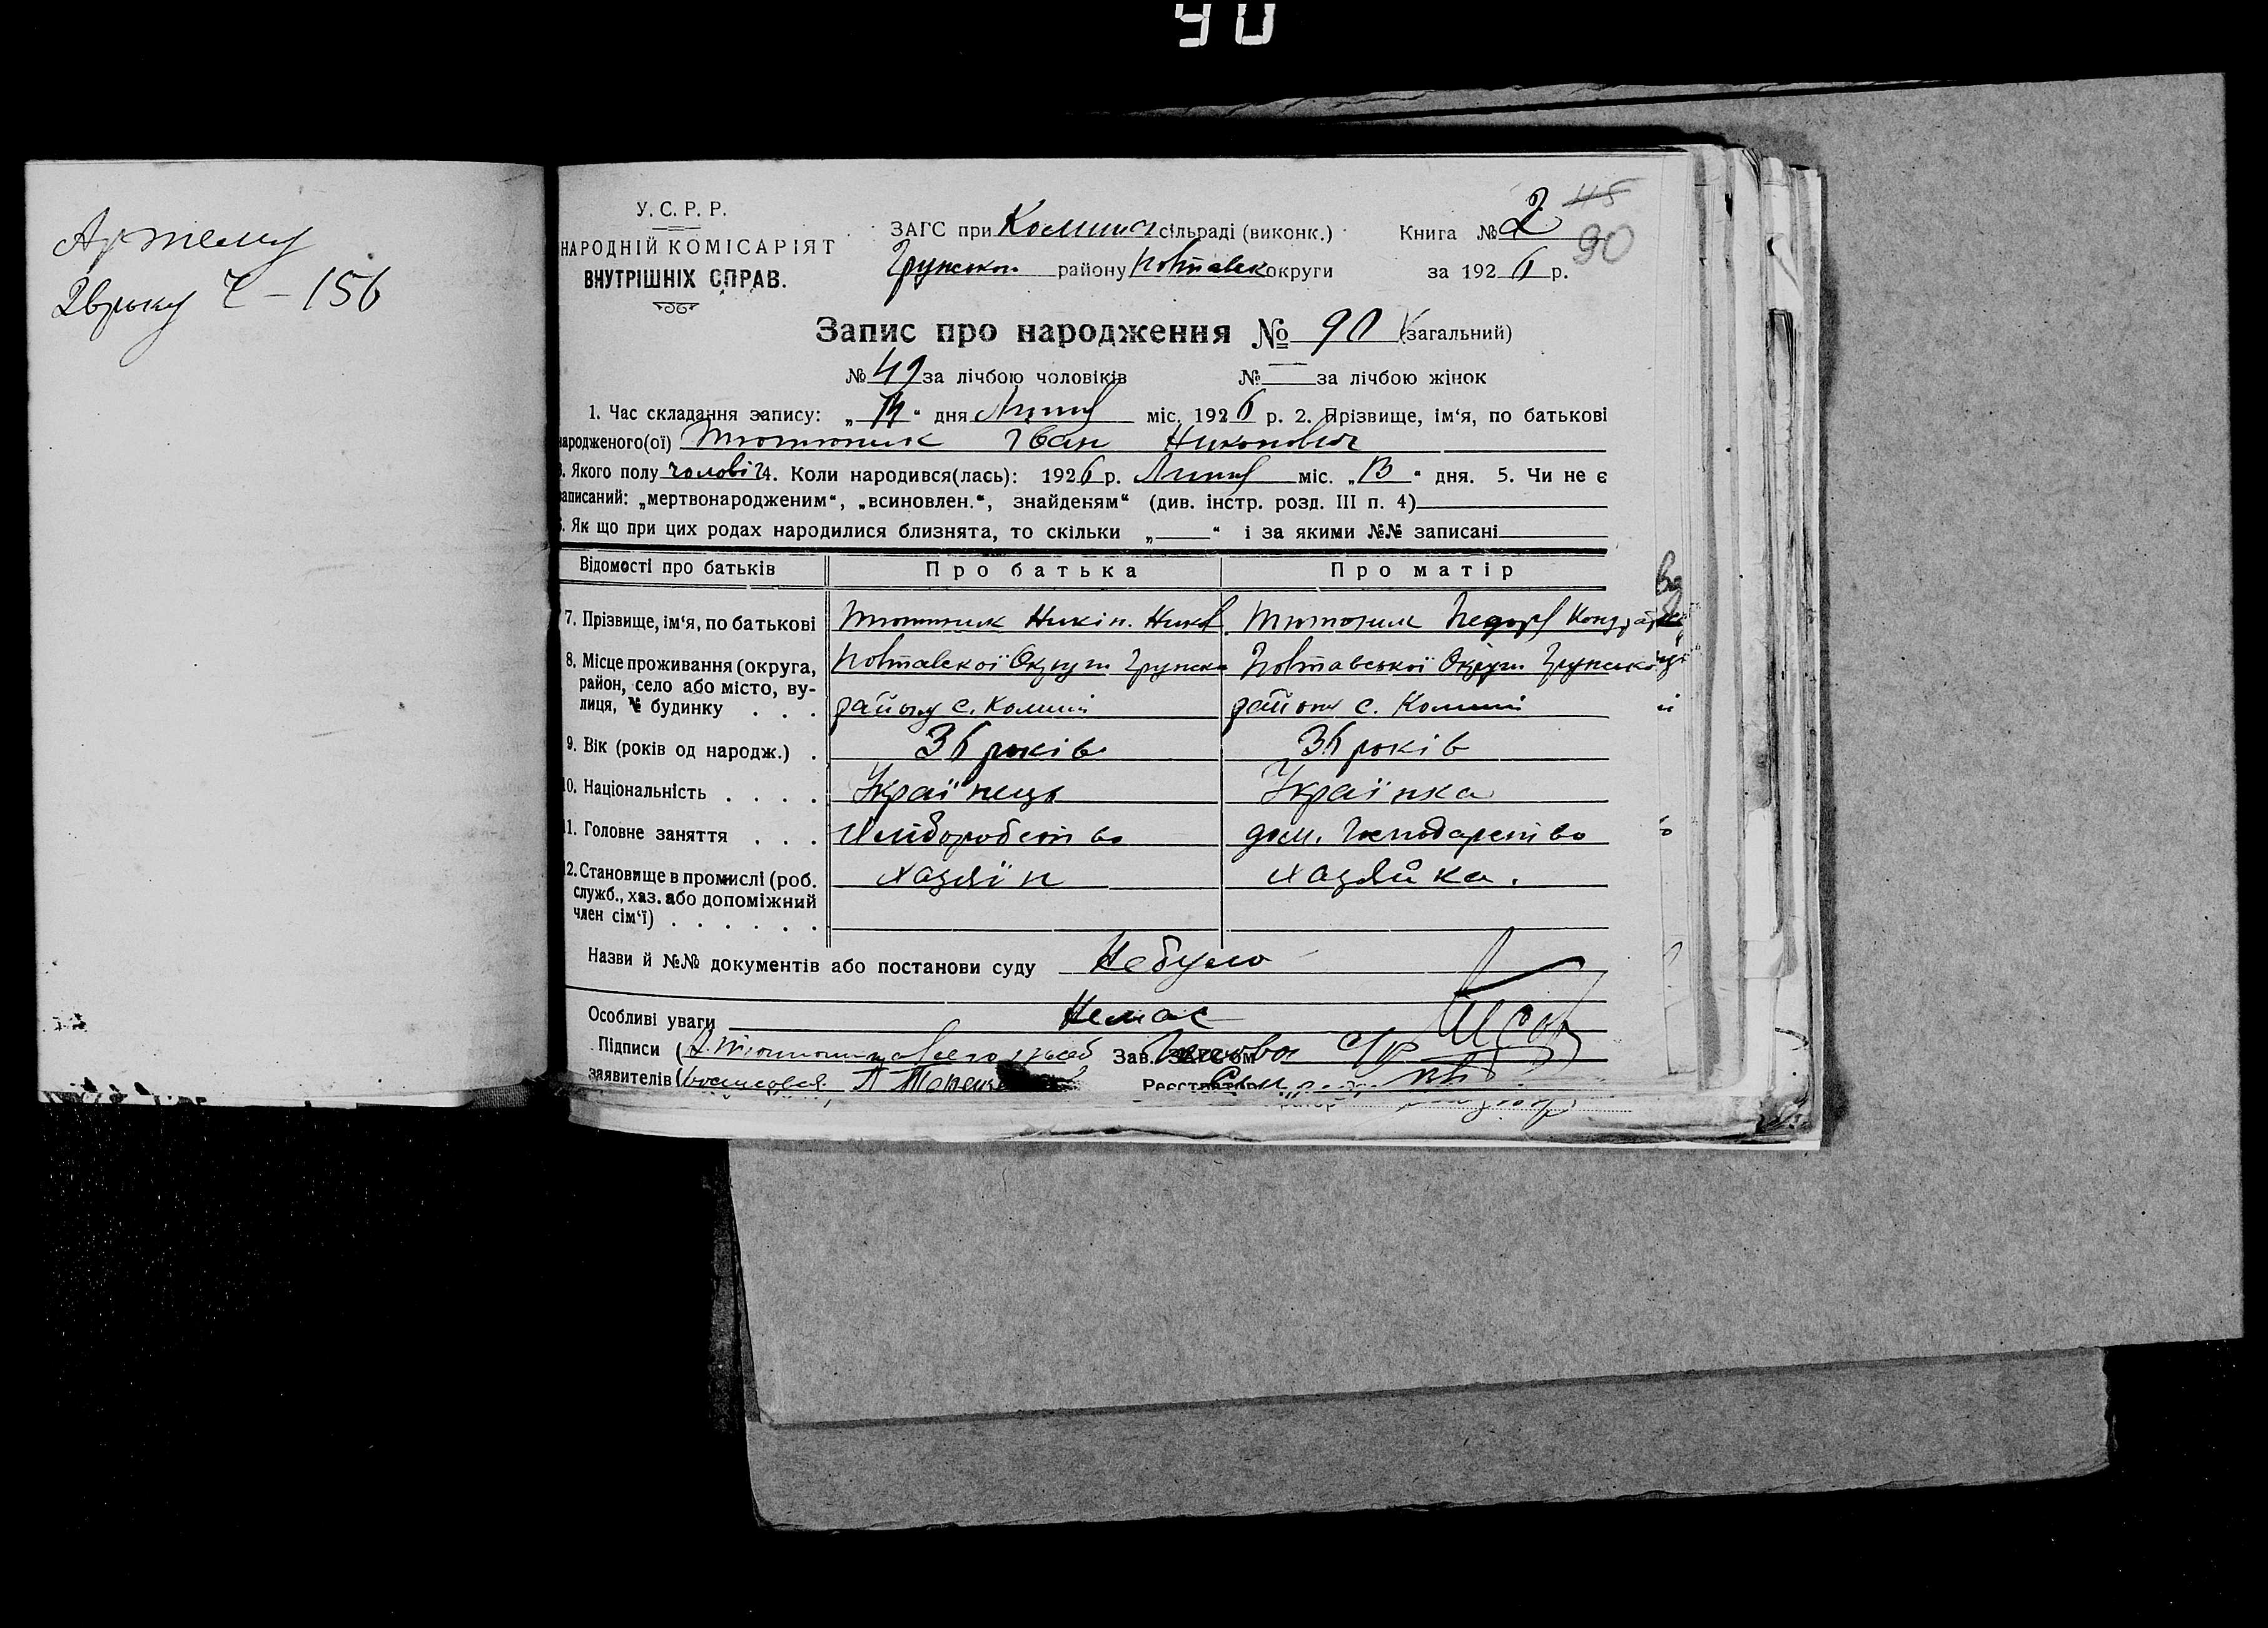 90
Артему
Двірику Ч – 156
У. С. Р. Р.
НАРОДНІЙ КОМІСАРІЯТ
ВНУТРІШНІХ СПРАВ.
ЗАГС при Комиш сільраді (виконк.)
Грунськ району Полтавськ округи
Книга № 2
45
90
за 1926 р.
Запис про народження № 90 (загальний)
№ 49 за лічбою чоловіків № — за лічбою жінок
1. Час складання запису: „14“ дня Липня міс. 1926 р. 2. Прізвище, ім‘я, по батькові
народженого(ої) Тютюник Іван Никонович
3. Якого полу чоловіч 4. Коли народився(лась): 1926 р. Липня міс. „13“ дня. 5. Чи не є
записаний: „мертвонародженим“, „всиновлен.“, знайденям“ (див. інстр. розд. III п. 4)
6. Як що при цих родах народилися близнята, то скільки „—“ і за якими №№ записані
Відомості про батьків Про батька Про матір
7. Прізвище, ім‘я, по батькові Тютюник Никін. Тютюник Кондрат
8. Місце проживання (округа, Полтавської Округи Грунська Полтавської Округи Грунсько
район, село або місто, ву-
лиця, № будинку . . . району с. Комиші району с. Комиші
9. Вік (років од народж.) . 36 років 36 років
10. Національність . . . . Українець Українка
11. Головне заняття . . . Хліборобство дом. Господарство
12. Становище в промислі (роб. Хазяїн Хазяйка.
служб., хаз. або допоміжний
член сім‘ї) . . . . . .
Назви й №№ документів або постанови суду Небуло
Особливі уваги Немає
Підписи ( Зав. ЗАГС‘ом Голова С/Р
заявителів ( Реєстратор